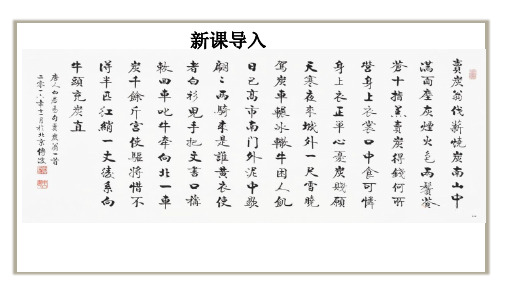 新课导入
賣炭翁伐薪燒炭南山中
滿面塵灰煙火色兩鬢蒼
蒼十指黑賣炭得錢何所
營身上衣裳口中食可憐
身上衣正單心憂炭賤願
天寒夜來城外一尺雪曉
駕炭車輾冰轍牛困人飢
日已高市南門外泥中歇
翩〻兩騎來是誰黃衣使
者白衫兒手把文書口稱
敕回車叱牛牽向北一車
炭千餘斤宮使驅將惜不
得半匹紅綃一丈綾系向
牛頭充炭直
唐人白居易 賣炭翁一首
於北京